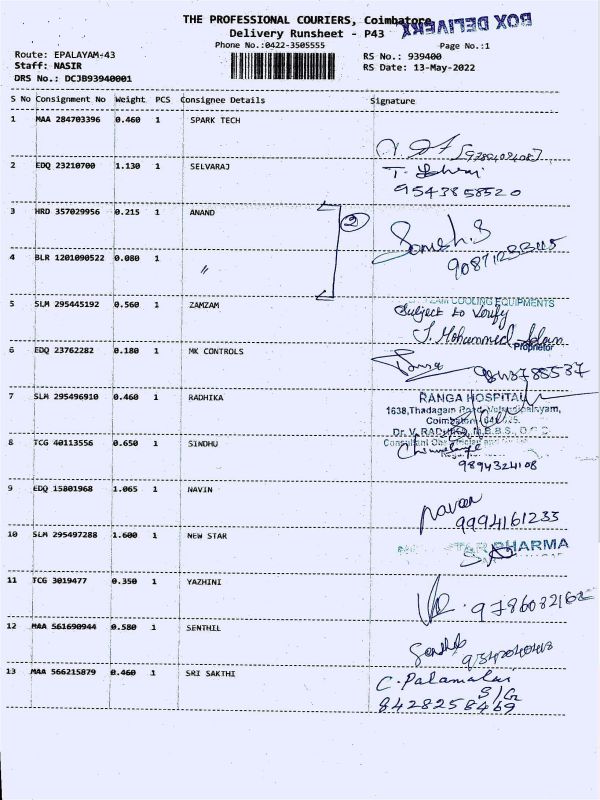 THE PROFESSIONAL COURIERS, Coimbatore
BOX DELIVERY
Delivery Runsheet - P43
Phone No.:0422-3505555
Page No.:1
Route: EPALAYAM-43
RS No.: 939400
Staff: NASIR
RS Date: 13-May-2022
DRS No.: DCJB93940001
S No Consignment No Weight PCS Consignee Details Signature
1 MAA 284703396 0.460 1 SPARK TECH
2 EDQ 23210700 1.130 1 SELVARAJ
9543858520
3 HRD 357029956 0.215 1 ANAND
2
4 BLR 1201090522 0.080 1 〃
5 SLM 295445192 0.560 1 ZAMZAM
COOLING EQUIPMENTS
Subject to Verify
J. Mohammed
Proprietor
6 EDQ 23762282 0.180 1 MK CONTROLS
7 SLM 295496910 0.460 1 RADHIKA
RANGA HOSPITAL
1638,Thadagam Road,
8 TCG 40113556 0.650 1 SINDHU
9894324108
9 EDQ 15801968 1.065 1 NAVIN
naveen
9994161233
10 SLM 295497288 1.600 1 NEW STAR
STAR PHARMA
11 TCG 3019477 0.350 1 YAZHINI
12 MAA 561690944 0.580 1 SENTHIL
13 MAA 566215879 0.460 1 SRI SAKTHI
C. Palamalai
S/G
8428258469